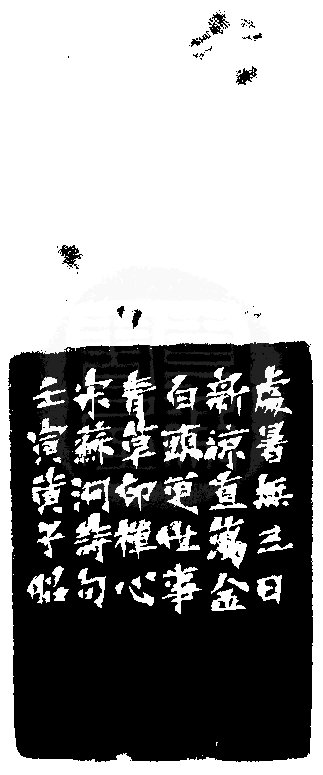 處暑無三日
新涼直萬金
白頭更世事
青草印禪心
宋蘇泂詩句
壬寅黄子